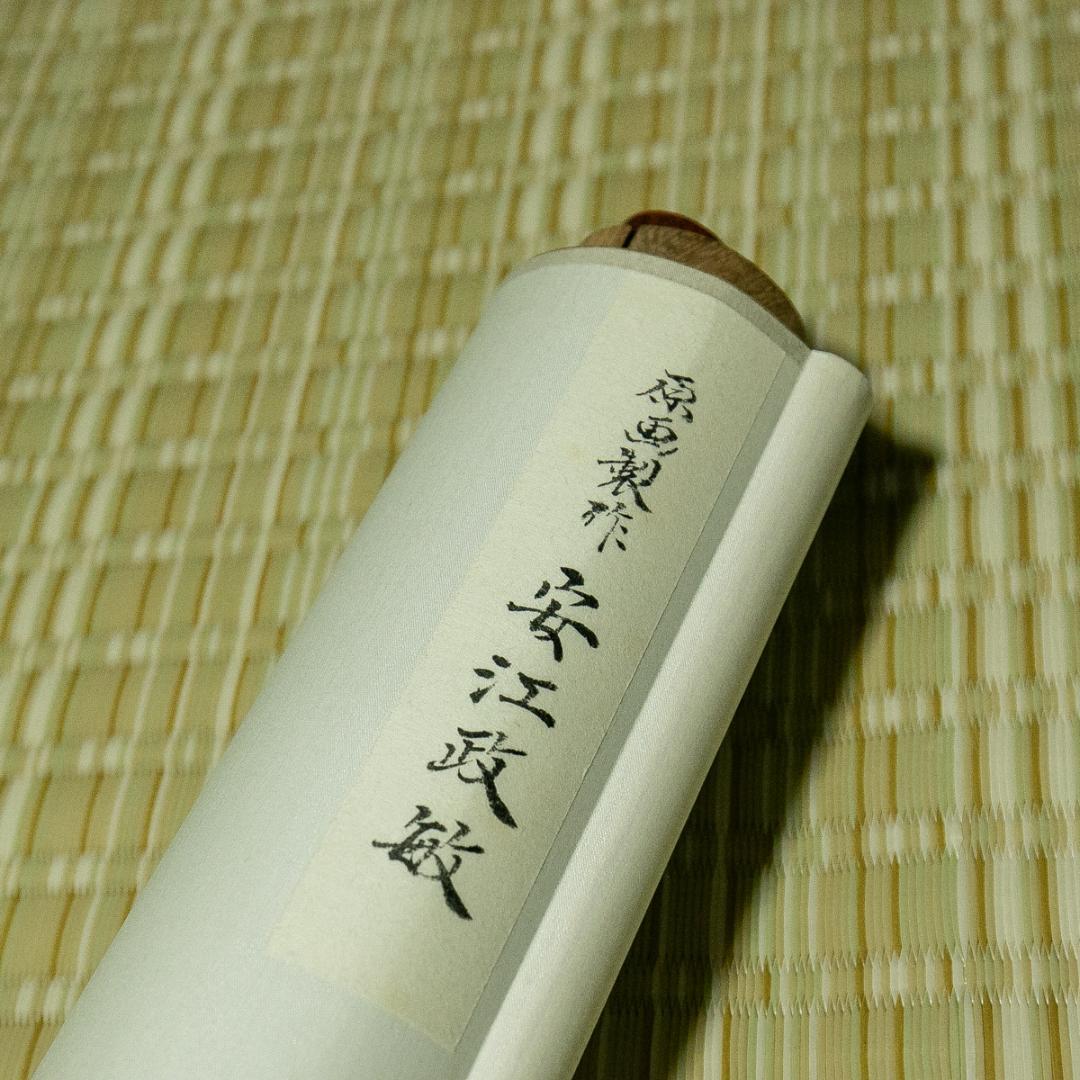 原画製作 安江政敏